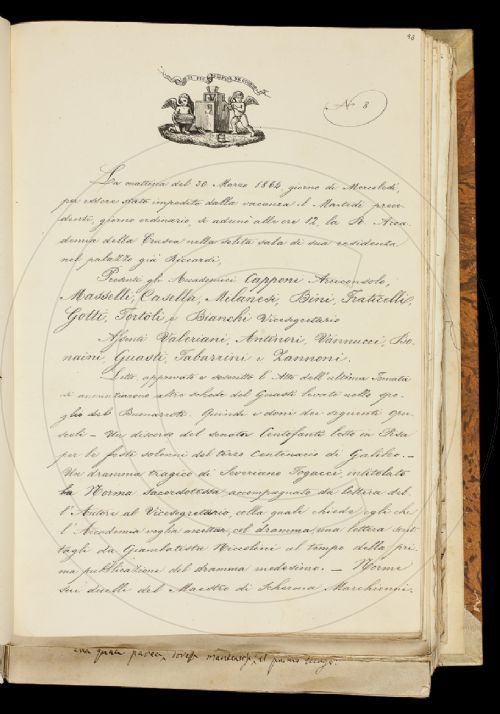 98
IL PIÙ BEL FIOR NE COGLIE
N. 8
La mattina del 30 Marzo 1864, giorno di Mercoledì,
per essere stato impedito dalla vacanza il Martedì prece-
dente, giorno ordinario, si adunò alle ore 12, la R. Acca-
demia della Crusca nella solita sala di sua residenza
nel palazzo già Riccardi,
Presenti gli Accademici Capponi Arciconsolo,
Masselli, Casella, Milanesi, Bini, Fraticelli,
Gotti, Tortoli e Bianchi Vicesegretario
Assenti Valeriani, Antinori, Vannucci, Bo-
naini, Guasti, Tabarrini e Zannoni.
Letto, approvato e soscritto l'Atto dell'ultima Tornata
si annunziarono altre schede del Guasti levate nello spo-
glio del Buonarroti. Quindi i doni dei seguenti Opu-
scoli — Un discorso del senator Centofanti letto in Pisa
per le feste solenni del terzo Centenario di Galileo. —
Un dramma tragico di Severiano Fogacci, intitolato
la Norma Sacerdotessa, accompagnato da lettera del-
l'Autore al Vicesegretario, colla quale chiede egli che
l'Accademia voglia accettar, col dramma, una lettera scrit-
tagli da Giambatista Niccolini al tempo della pri-
ma pubblicazione del dramma medesimo. — Norme
sui duelli del Maestro di Scherma Marchionni.